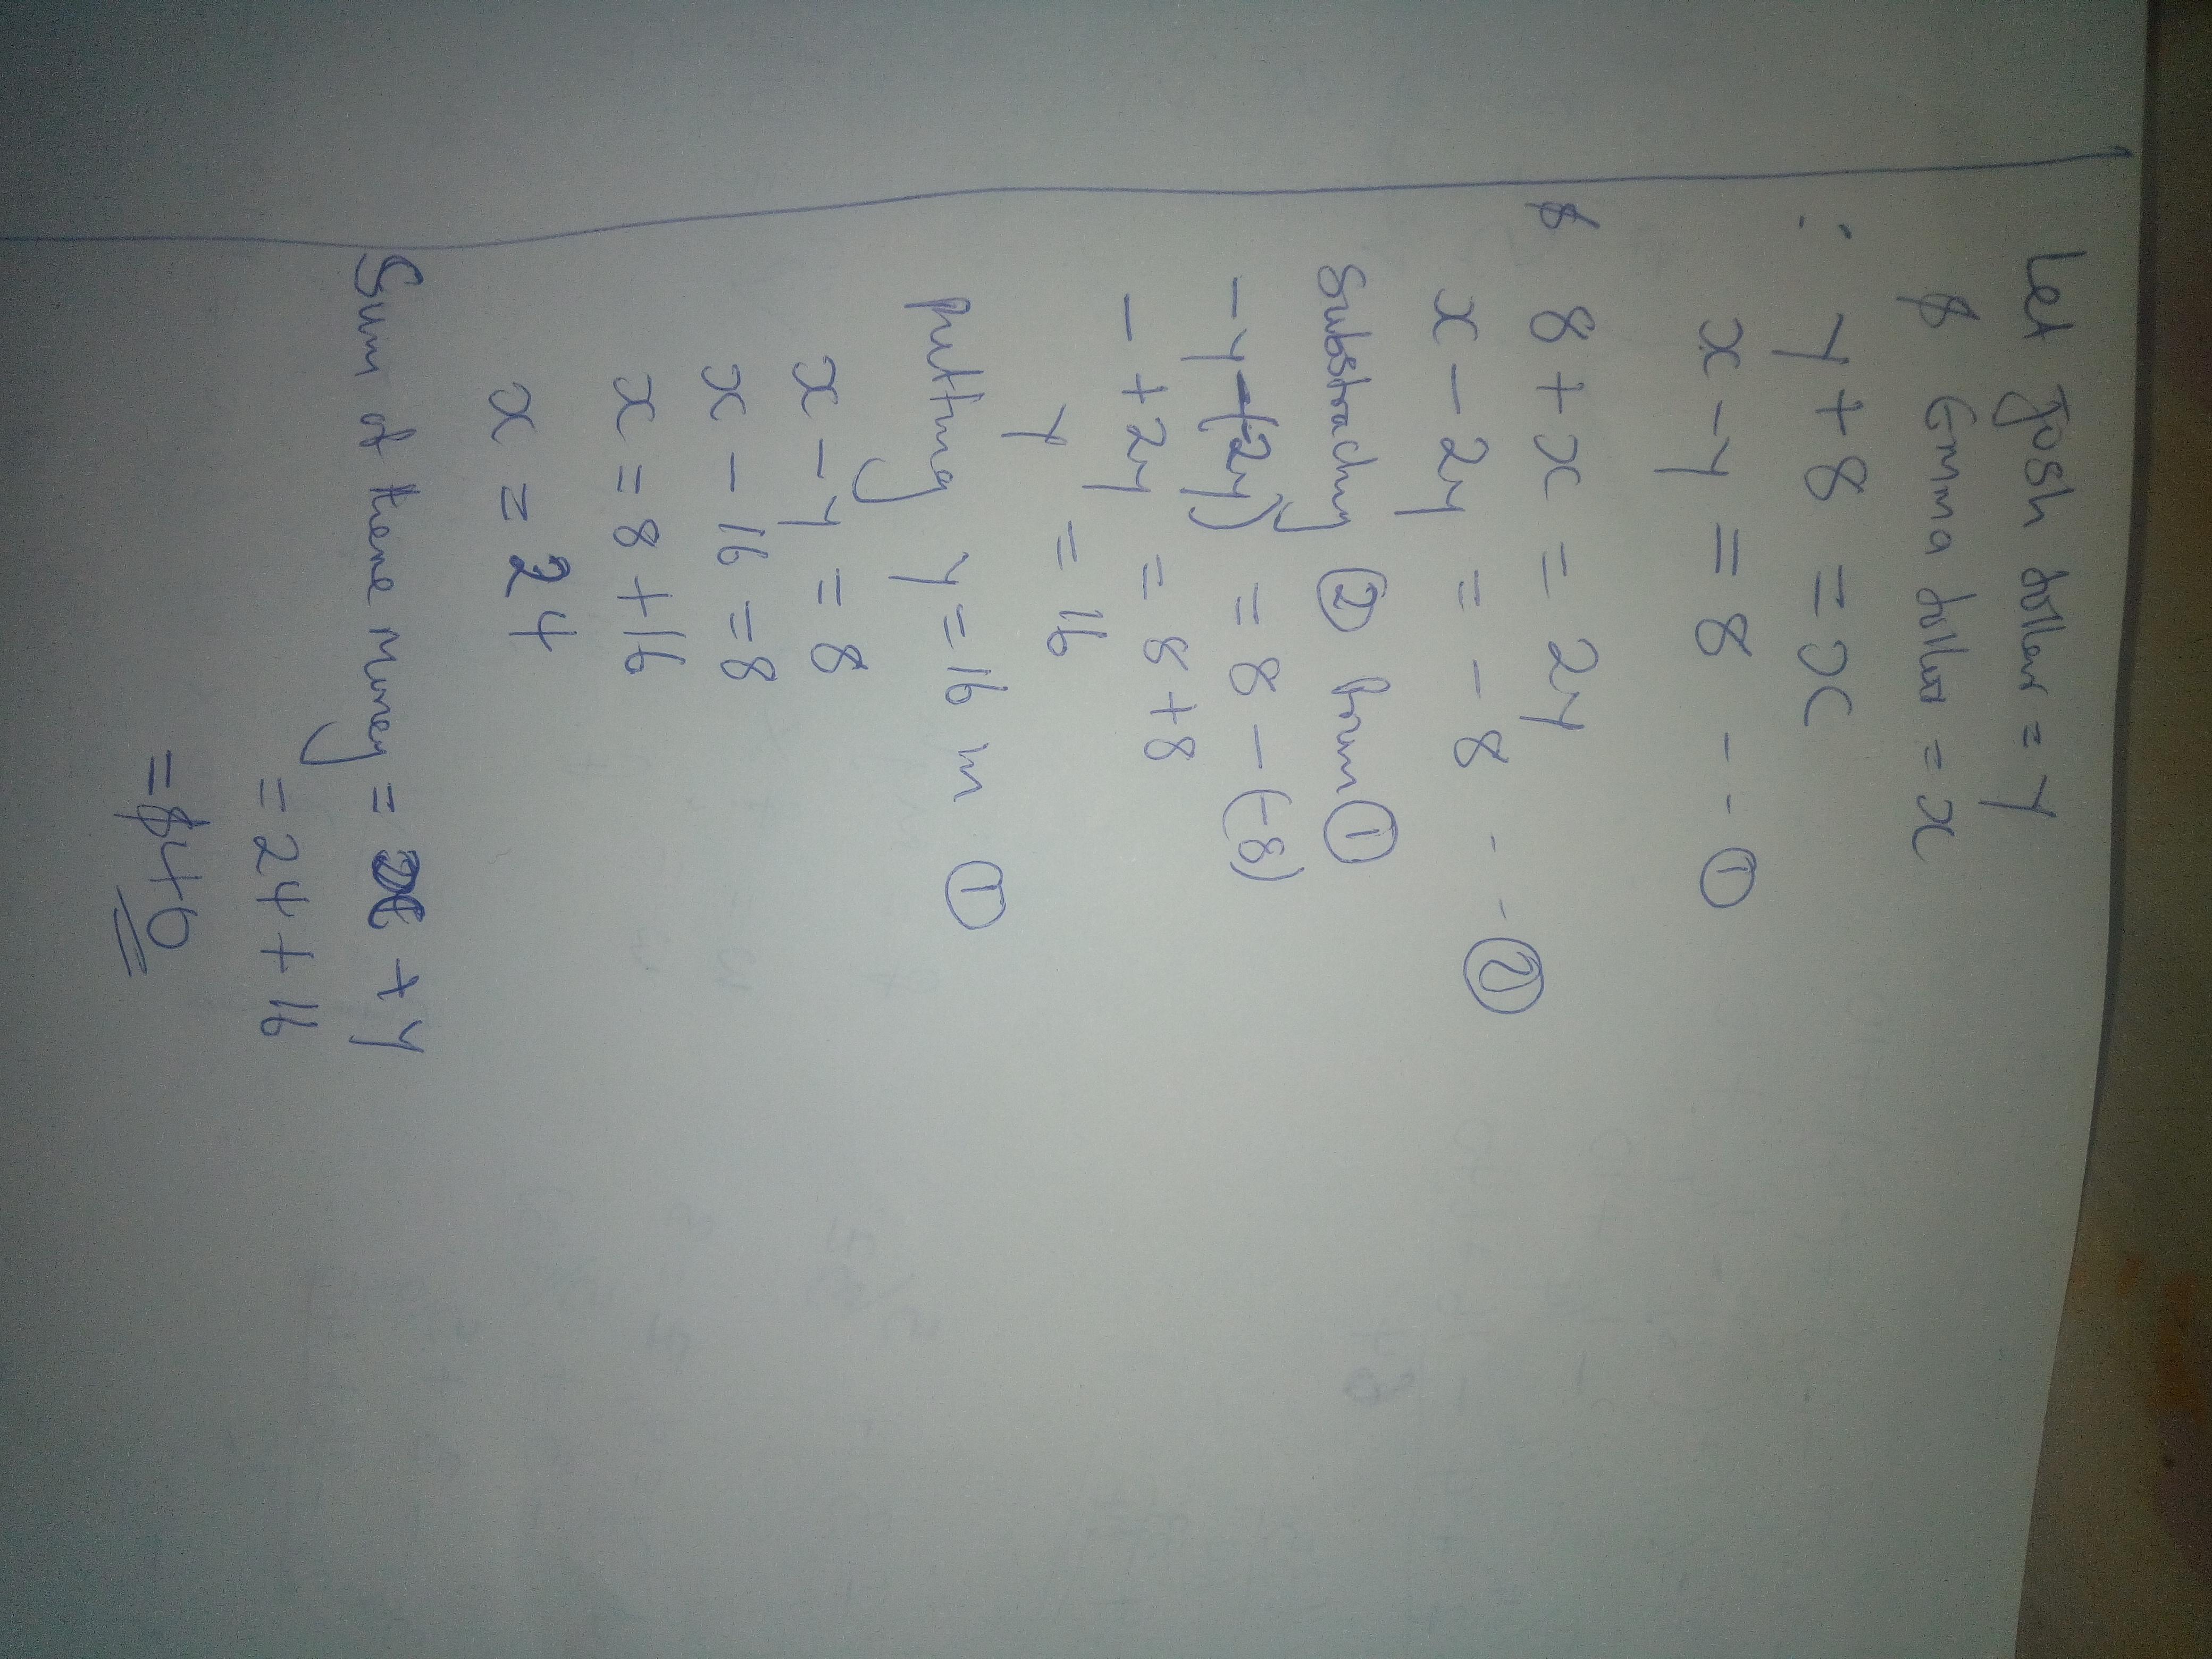 Let Josh dollar = y
$ Emma dollar = x
∴ y + 8 = x
x - y = 8 - - - ①
$ 8 + x = 2y
x - 2y = - 8 - - - ②
Substracting ② from ①
- y - (-2y) = 8 - (-8)
- + 2y = 8 + 8
y = 16
putting y = 16 in ①
x - y = 8
x - 16 = 8
x = 8 + 16
x = 24
Sum of there Money = x + y
= 24 + 16
= $40